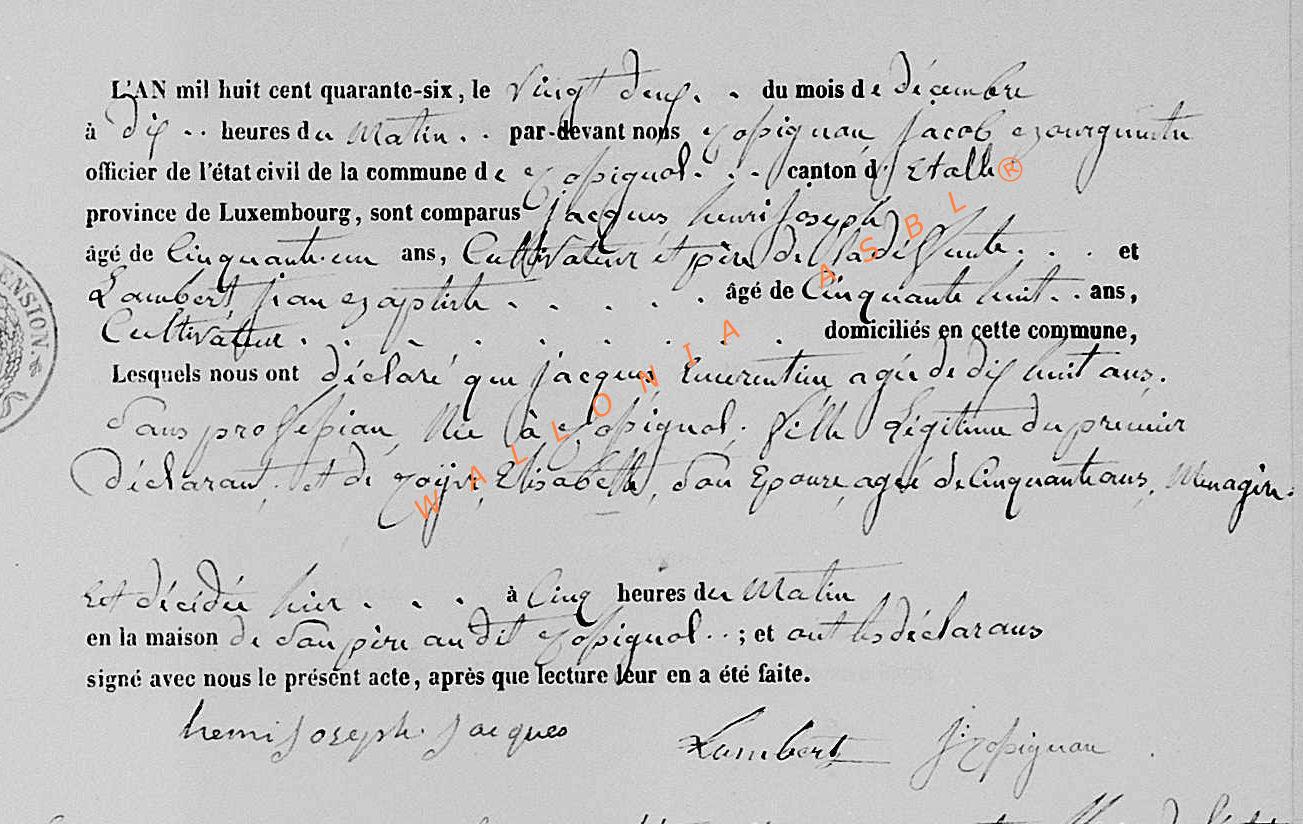 L'AN mil huit cent quarante-six, le Vingt deux. . du mois de décembre
à dix .. heures du Matin .. par-devant nous Jacob
officier de l'état civil de la commune de canton d'Etalle
province de Luxembourg, sont comparus Jacques henri Joseph
âgé de Cinquante-un ans, Cultivateur et père de la défunte . . . et
Lambert, jean baptiste . . . . . âgé de Cinquante huit .. ans,
Cultivateur . . . . . . . . domiciliés en cette commune,
Lesquels nous ont déclaré que jacques, Emerentine agée de dix huit ans.
Sans profession, Née à fille Légitime du premier
déclarant, et de Elisabeth, son Epouse, agée de Cinquante ans, Menagère
Est décédée hier . . . à Cinq heures du Matin
en la maison de son père au dit ..; et ont les déclarans
signé avec nous le présent acte, après que lecture leur en a été faite.
henri joseph jacques
Lambert
ENSION.
WALLONIA ASBL ®